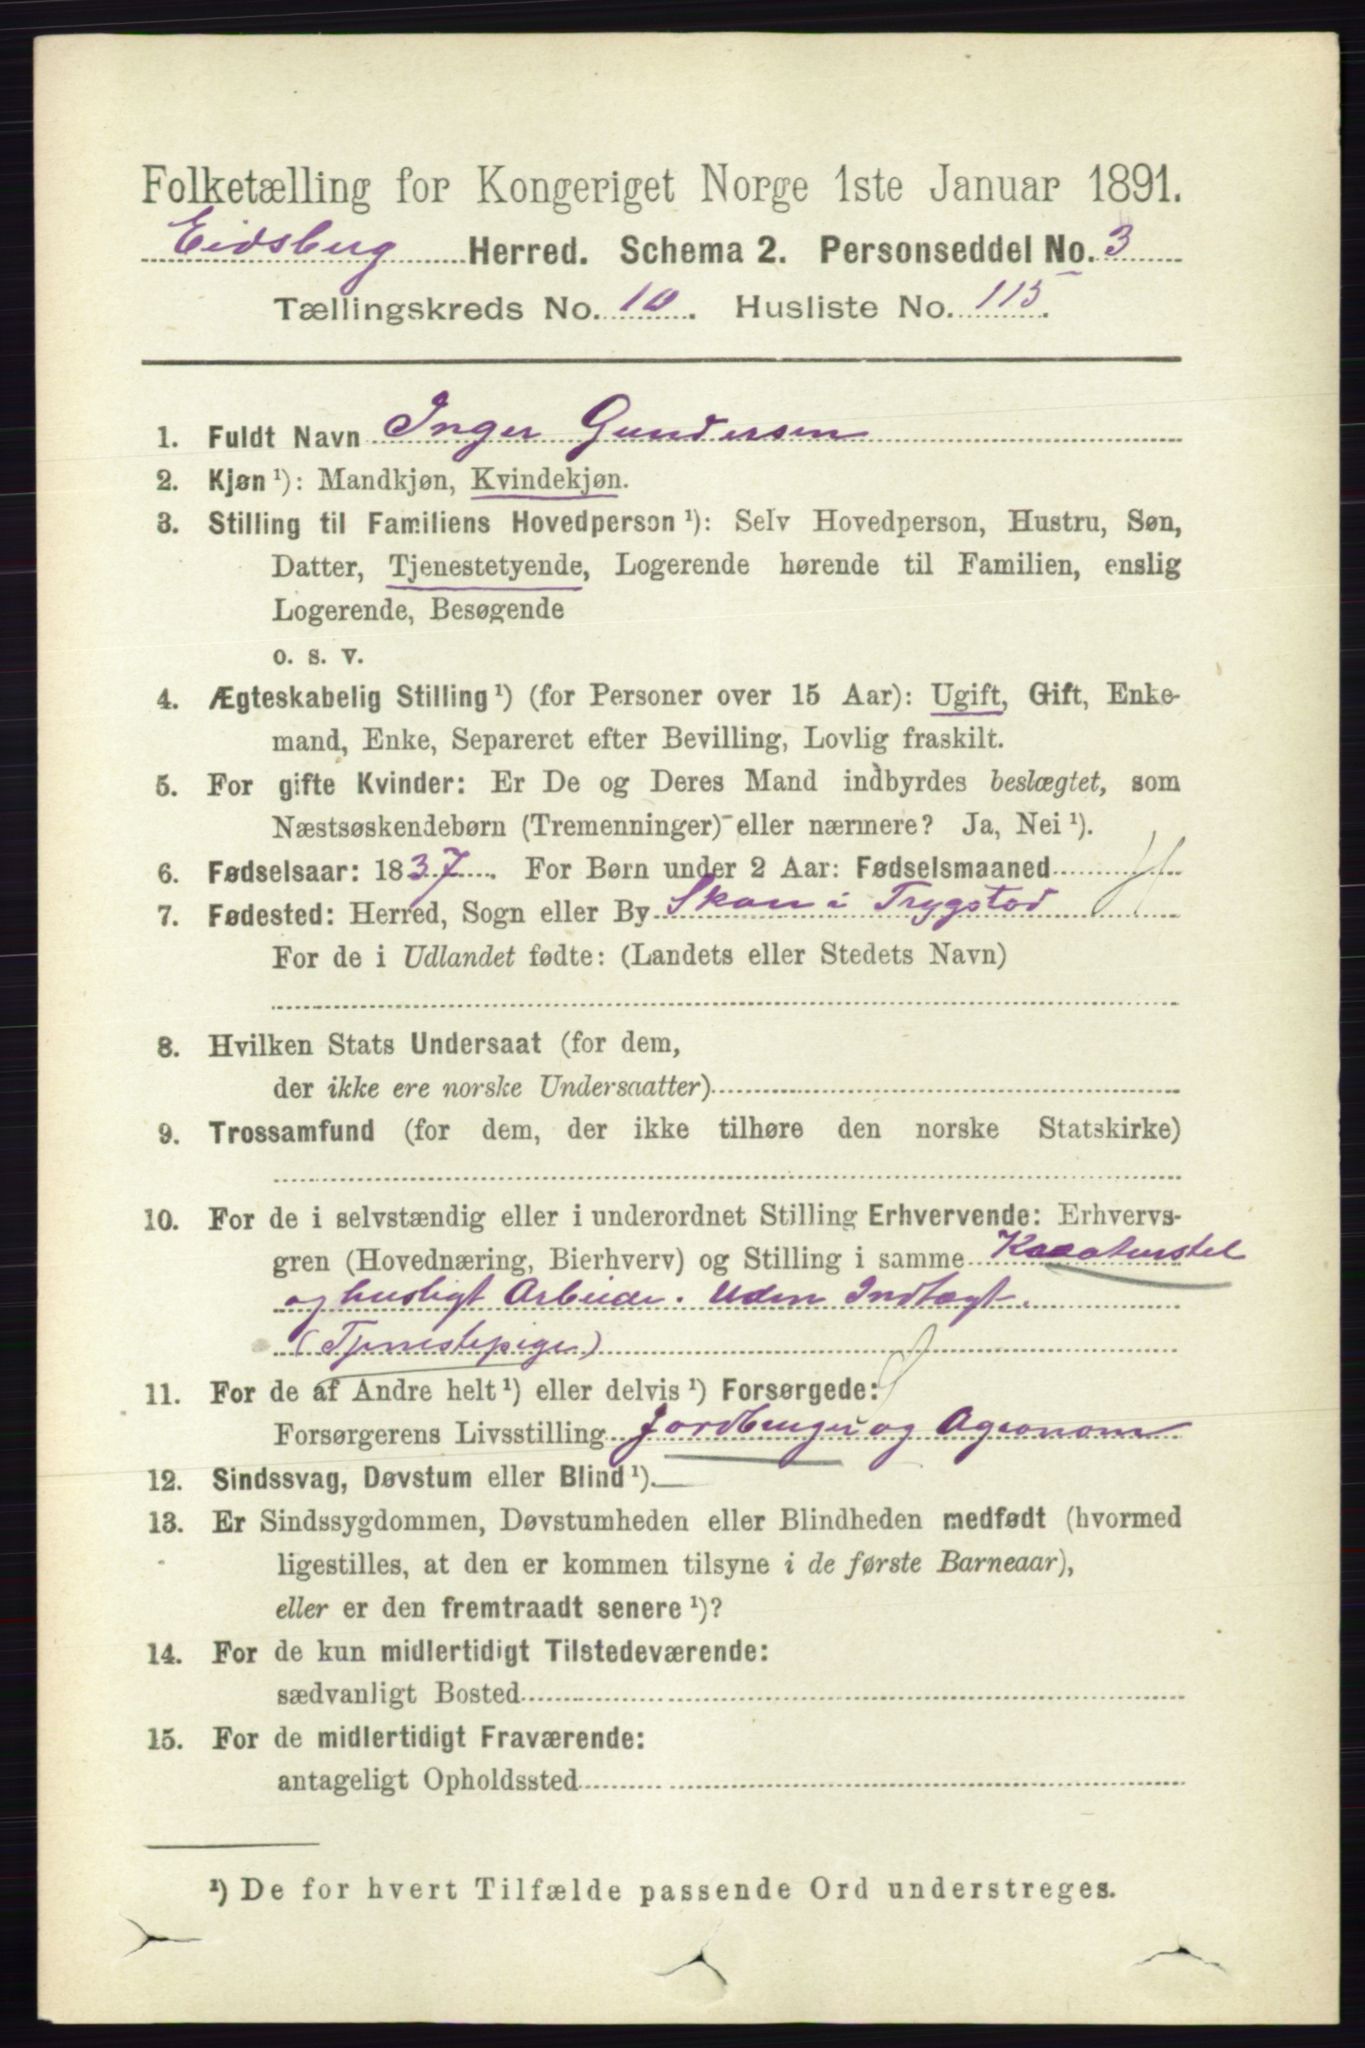 Folketælling for Kongeriget Norge 1ste Januar 1891.
Eidsberg Herred. Schema 2. Personseddel No. 3
Tællingskreds No. 10. Husliste No. 115.
1. Fuldt Navn Inger Gundersen
2. Kjøn ¹): Mandkjøn, Kvindekjøn.
3. Stilling til Familiens Hovedperson ¹): Selv Hovedperson, Hustru, Søn,
Datter, Tjenestetyende, Logerende hørende til Familien, enslig
Logerende, Besøgende
o. s. v.
4. Ægteskabelig Stilling ¹) (for Personer over 15 Aar): Ugift, Gift, Enke-
mand, Enke, Separeret efter Bevilling, Lovlig fraskilt.
5. For gifte Kvinder: Er De og Deres Mand indbyrdes beslægtet, som
Næstsøskendebørn (Tremenninger) eller nærmere? Ja, Nei ¹).
6. Fødselsaar: 1837. For Børn under 2 Aar: Fødselsmaaned
7. Fødested: Herred, Sogn eller By i Trygstad
For de i Udlandet fødte: (Landets eller Stedets Navn)
8. Hvilken Stats Undersaat (for dem,
der ikke ere norske Undersaatter)
9. Trossamfund (for dem, der ikke tilhøre den norske Statskirke)
10. For de i selvstændig eller i underordnet Stilling Erhvervende: Erhvervs-
gren (Hovednæring, Bierhverv) og Stilling i samme
og husligt Arbeide. Uden Indtægt.
(Tjenestepige)
11. For de af Andre helt ¹) eller delvis ¹) Forsørgede:
Forsørgerens Livsstilling Jordbruger og Agronom
12. Sindssvag, Døvstum eller Blind ¹).
13. Er Sindssygdommen, Døvstumheden eller Blindheden medfødt (hvormed
ligestilles, at den er kommen tilsyne i de første Barneaar),
eller er den fremtraadt senere ¹)?
14. For de kun midlertidigt Tilstedeværende:
sædvanligt Bosted
15. For de midlertidigt Fraværende:
antageligt Opholdssted
¹) De for hvert Tilfælde passende Ord understreges.